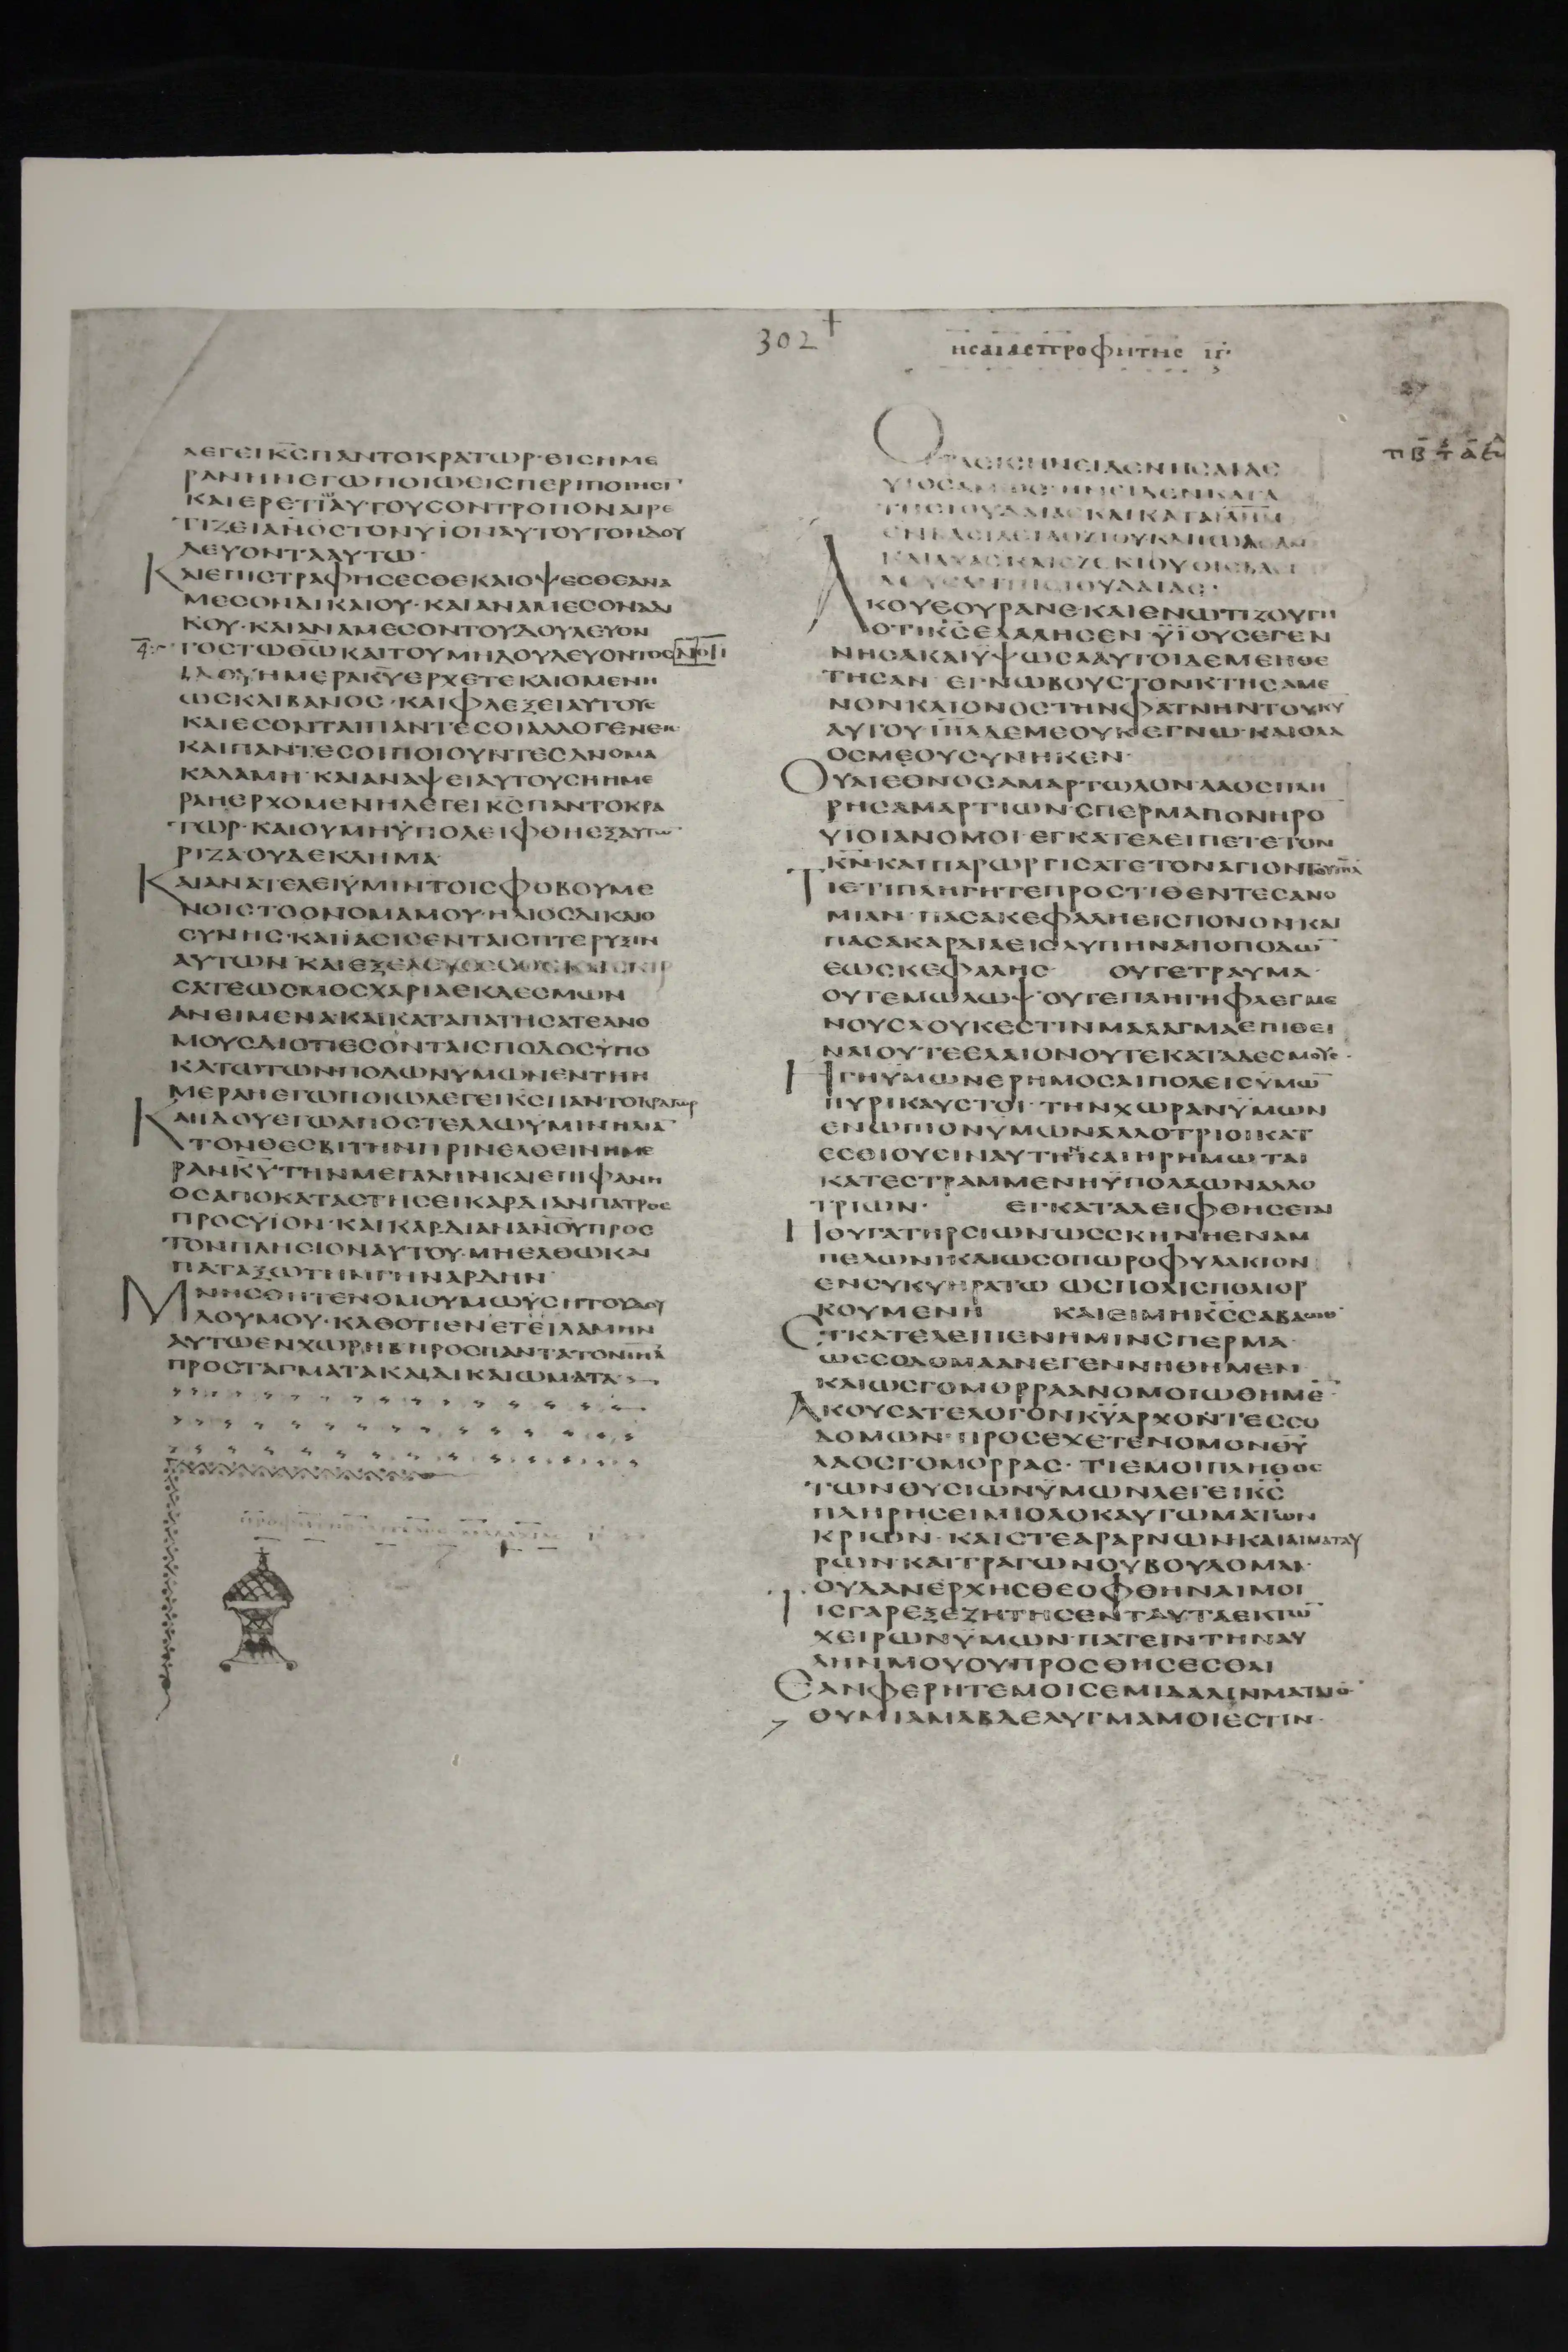 302
ΗСΑΙΑСΠΡΟΦΗΤΗС ΙΓ·
ΛΕΓΕΙΚ̅С̅ΠΑΝΤΟΚΡΑΤΩΡ·ΘΙСΗΜΕ
ΡΑΝΗΝΕΓΩΠΟΙΩΕΙСΠΕΡΙΠΟΙΗСΙ
ΚΑΙΕΡΕΤΙΩΑΥΤΟΥСΟΝΤΡΟΠΟΝΑΙΡΕ
ΤΙΖΕΙΑΝΟСΤΟΝΥΙΟΝΑΥΤΟΥΤΟΝΔΟΥ
ΛΕΥΟΝΤΑΑΥΤΩ·
ΚΑΙΕΠΙСΤΡΑΦΗСΕСΘΕΚΑΙΟΨΕСΘΕΑΝΑ
ΜΕСΟΝΔΙΚΑΙΟΥ·ΚΑΙΑΝΑΜΕСΟΝΑΔΙ
ΚΟΥ·ΚΑΙΑΝΑΜΕСΟΝΤΟΥΔΟΥΛΕΥΟΝ
ΤΟСΤΩΘ̅Ω̅ΚΑΙΤΟΥΜΗΔΟΥΛΕΥΟΝΤΟС
ΙΔΟΥΗΜΕΡΑΚ̅Υ̅ΕΡΧΕΤΕΚΑΙΟΜΕΝΗ
ΩСΚΛΙΒΑΝΟС·ΚΑΙΦΛΕΞΕΙΑΥΤΟΥС
ΚΑΙΕСΟΝΤΑΙΠΑΝΤΕСΟΙΑΛΛΟΓΕΝΕΙС
ΚΑΙΠΑΝΤΕСΟΙΠΟΙΟΥΝΤΕСΑΝΟΜΑ
ΚΑΛΑΜΗ·ΚΑΙΑΝΑΨΕΙΑΥΤΟΥСΗΗΜΕ
ΡΑΗΕΡΧΟΜΕΝΗΛΕΓΕΙΚ̅С̅ΠΑΝΤΟΚΡΑ
ΤΩΡ·ΚΑΙΟΥΜΗΫΠΟΛΕΙΦΘΗΕΞΑΥΤΩ̅
ΡΙΖΑΟΥΔΕΚΛΗΜΑ
ΚΑΙΑΝΑΤΕΛΕΙΫΜΙΝΤΟΙСΦΟΒΟΥΜΕ
ΝΟΙСΤΟΟΝΟΜΑΜΟΥ·ΗΛΙΟСΔΙΚΑΙΟ
СΥΝΗС·ΚΑΙΪΑСΙСΕΝΤΑΙСΠΤΕΡΥΞΙΝ
СΑΤΕΩСΜΟСΧΑΡΙΑΕΚΔΕСΜΩΝ
ΑΝΕΙΜΕΝΑ·ΚΑΙΚΑΤΑΠΑΤΗСΑΤΕΑΝΟ
ΜΟΥСΔΙΟΤΙΕСΟΝΤΑΙСΠΟΔΟСΫΠΟ
ΚΑΤΩΤΩΝΠΟΔΩΝΥΜΩΝΕΝΤΗΗ
ΜΕΡΑΗΕΓΩΠΟΙΩΛΕΓΕΙΚ̅С̅ΠΑΝΤΟΚΡΑΤΩΡ
ΚΑΙΙΔΟΥΕΓΩΑΠΟСΤΕΛΛΩΥΜΙΝΗΛΙΑ̅
ΤΟΝΘΕСΒΙΤΗΝΠΡΙΝΕΛΘΕΙΝΗΜΕ
ΡΑΝΚ̅Υ̅ΤΗΝΜΕΓΑΛΗΝΚΑΙΕΠΙΦΑΝΗ
ΟСΑΠΟΚΑΤΑСΤΗСΕΙΚΑΡΔΙΑΝΠΑΤΡΟС
ΠΡΟСΥΙΟΝ·ΚΑΙΚΑΡΔΙΑΝΑΝ̅Ο̅Υ̅ΠΡΟС
ΤΟΝΠΛΗСΙΟΝΑΥΤΟΥ·ΜΗΕΛΘΩΚΑΙ
ΠΑΤΑΞΩΤΗΝΓΗΝΑΡΔΗΝ
ΜΝΗСΘΗΤΕΝΟΜΟΥΜΩΥСΗΤΟΥΔΟΥ
ΛΟΥΜΟΥ·ΚΑΘΟΤΙΕΝΕΤΕΙΛΑΜΗΝ
ΑΥΤΩΕΝΧΩΡΗΒΠΡΟСΠΑΝΤΑΤΟΝΙ̅Η̅Λ̅
ΠΡΟСΤΑΓΜΑΤΑΚΑΙΔΙΚΑΙΩΜΑΤΑ
ΥΙΟСΑΜΩС·ΗΝΕΙΔΕΝΚΑΤΑ
ΤΗСΙΟΥΔΑΙΑСΚΑΙΚΑΤΑΙ̅Λ̅Η̅Μ̅
ΛΕΥСΑΝΤΗСΙΟΥΔΑΙΑС·
ΑΚΟΥΕΟΥΡΑΝΕ·ΚΑΙΕΝΩΤΙΖΟΥΓΗ
ΟΤΙΚ̅С̅ΕΛΑΛΗСΕΝ·ΫΪΟΥСΕΓΕΝ
ΝΗСΑΚΑΙΥΨΩСΑΑΥΤΟΙΔΕΜΕΗΘΕ
ΤΗСΑΝ ΕΓΝΩΒΟΥСΤΟΝΚΤΗСΑΜΕ
ΝΟΝΚΑΙΟΝΟСΤΗΝΦΑΤΝΗΝΤΟΥΚ̅Υ̅
ΑΥΤΟΥ·Ι̅Η̅Λ̅ΔΕΜΕΟΥΚΕΓΝΩ·ΚΑΙΟΛΑ
ΟСΜΕΟΥСΥΝΗΚΕΝ·
ΟΥΑΙΕΘΝΟСΑΜΑΡΤΩΛΟΝ·ΛΑΟСΠΛΗ
ΡΗСΑΜΑΡΤΙΩΝ·СΠΕΡΜΑΠΟΝΗΡΟ
ΥΙΟΙΑΝΟΜΟΙ·ΕΓΚΑΤΕΛΕΙΠΕΤΕΤΟΝ
Κ̅Ν̅·ΚΑΙΠΑΡΩΡΓΙСΑΤΕΤΟΝΑΓΙΟΝΤΟΥΙ̅Η̅Λ̅
ΤΙΕΤΙΠΛΗΓΗΤΕΠΡΟСΤΙΘΕΝΤΕСΑΝΟ
ΜΙΑΝ·ΠΑСΑΚΕΦΑΛΗΕΙСΠΟΝΟΝΚΑΙ
ΠΑСΑΚΑΡΔΙΑΕΙСΛΥΠΗΝΑΠΟΠΟΔΩ̅
ΕΩСΚΕΦΑΛΗС ΟΥΤΕΤΡΑΥΜΑ·
ΟΥΤΕΜΩΛΩΨ·ΟΥΤΕΠΛΗΓΗΦΛΕΓΜΕ
ΝΟΥСΑΟΥΚΕСΤΙΝΜΑΛΑΓΜΑΕΠΙΘΕΙ
ΝΑΙΟΥΤΕΕΛΑΙΟΝΟΥΤΕΚΑΤΑΔΕСΜΟΥС·
ΗΓΗΫΜΩΝΕΡΗΜΟСΑΙΠΟΛΕΙСΥΜΩ̅
ΠΥΡΙΚΑΥСΤΟΙ·ΤΗΝΧΩΡΑΝΫΜΩΝ
ΕΝΩΠΙΟΝΥΜΩΝΑΛΛΟΤΡΙΟΙΚΑΤ
ΕСΘΙΟΥСΙΝΑΥΤΗΝΚΑΙΗΡΗΜΩΤΑΙ
ΚΑΤΕСΤΡΑΜΜΕΝΗΫΠΟΛΑΩΝΑΛΛΟ
ΤΡΙΩΝ· ΕΓΚΑΤΑΛΕΙΦΘΗСΕΙΝ
ΗΘΥΓΑΤΗΡСΙΩΝΩССΚΗΝΗΕΝΑΜ
ΠΕΛΩΝΙΚΑΙΩСΟΠΩΡΟΦΥΛΑΚΙΟΝ
ΕΝСΥΚΥΗΡΑΤΩ ΩСΠΟΛΙСΠΟΛΙΟΡ
ΚΟΥΜΕΝΗ ΚΑΙΕΙΜΗΚ̅С̅СΑΒΑΩΘ
ΕΓΚΑΤΕΛΕΙΠΕΝΗΜΙΝСΠΕΡΜΑ·
ΩССΟΔΟΜΑΑΝΕΓΕΝΝΗΘΗΜΕΝ
ΚΑΙΩСΓΟΜΟΡΡΑΑΝΟΜΟΙΩΘΗΜΕ̅
ΑΚΟΥСΑΤΕΛΟΓΟΝΚ̅Υ̅ΑΡΧΟΝΤΕССΟ
ΔΟΜΩΝ·ΠΡΟСΕΧΕΤΕΝΟΜΟΝΘ̅Υ̅
ΛΑΟСΓΟΜΟΡΡΑС·ΤΙΕΜΟΙΠΛΗΘΟС
ΤΩΝΘΥСΙΩΝΫΜΩΝΛΕΓΕΙΚ̅С̅
ΠΛΗΡΗСΕΙΜΙΟΛΟΚΑΥΤΩΜΑΤΩΝ
ΚΡΙΩΝ·ΚΑΙСΤΕΑΡΑΡΝΩΝΚΑΙΑΙΜΑΤΑΥ
ΡΩΝ·ΚΑΙΤΡΑΓΩΝΟΥΒΟΥΛΟΜΑΙ·
ΟΥΔΑΝΕΡΧΗСΘΕΟΦΘΗΝΑΙΜΟΙ
ΤΙСΓΑΡΕΞΕΖΗΤΗСΕΝΤΑΥΤΑΕΚΤΩ̅
ΧΕΙΡΩΝΫΜΩΝ·ΠΑΤΕΙΝΤΗΝΑΥ
ΛΗΝΜΟΥΟΥΠΡΟСΘΗСΕСΘΑΙ
ΕΑΝΦΕΡΗΤΕΜΟΙСΕΜΙΔΑΛΙΝΜΑΤΑΙΟ̅
ΘΥΜΙΑΜΑΒΔΕΛΥΓΜΑΜΟΙΕСΤΙΝ·